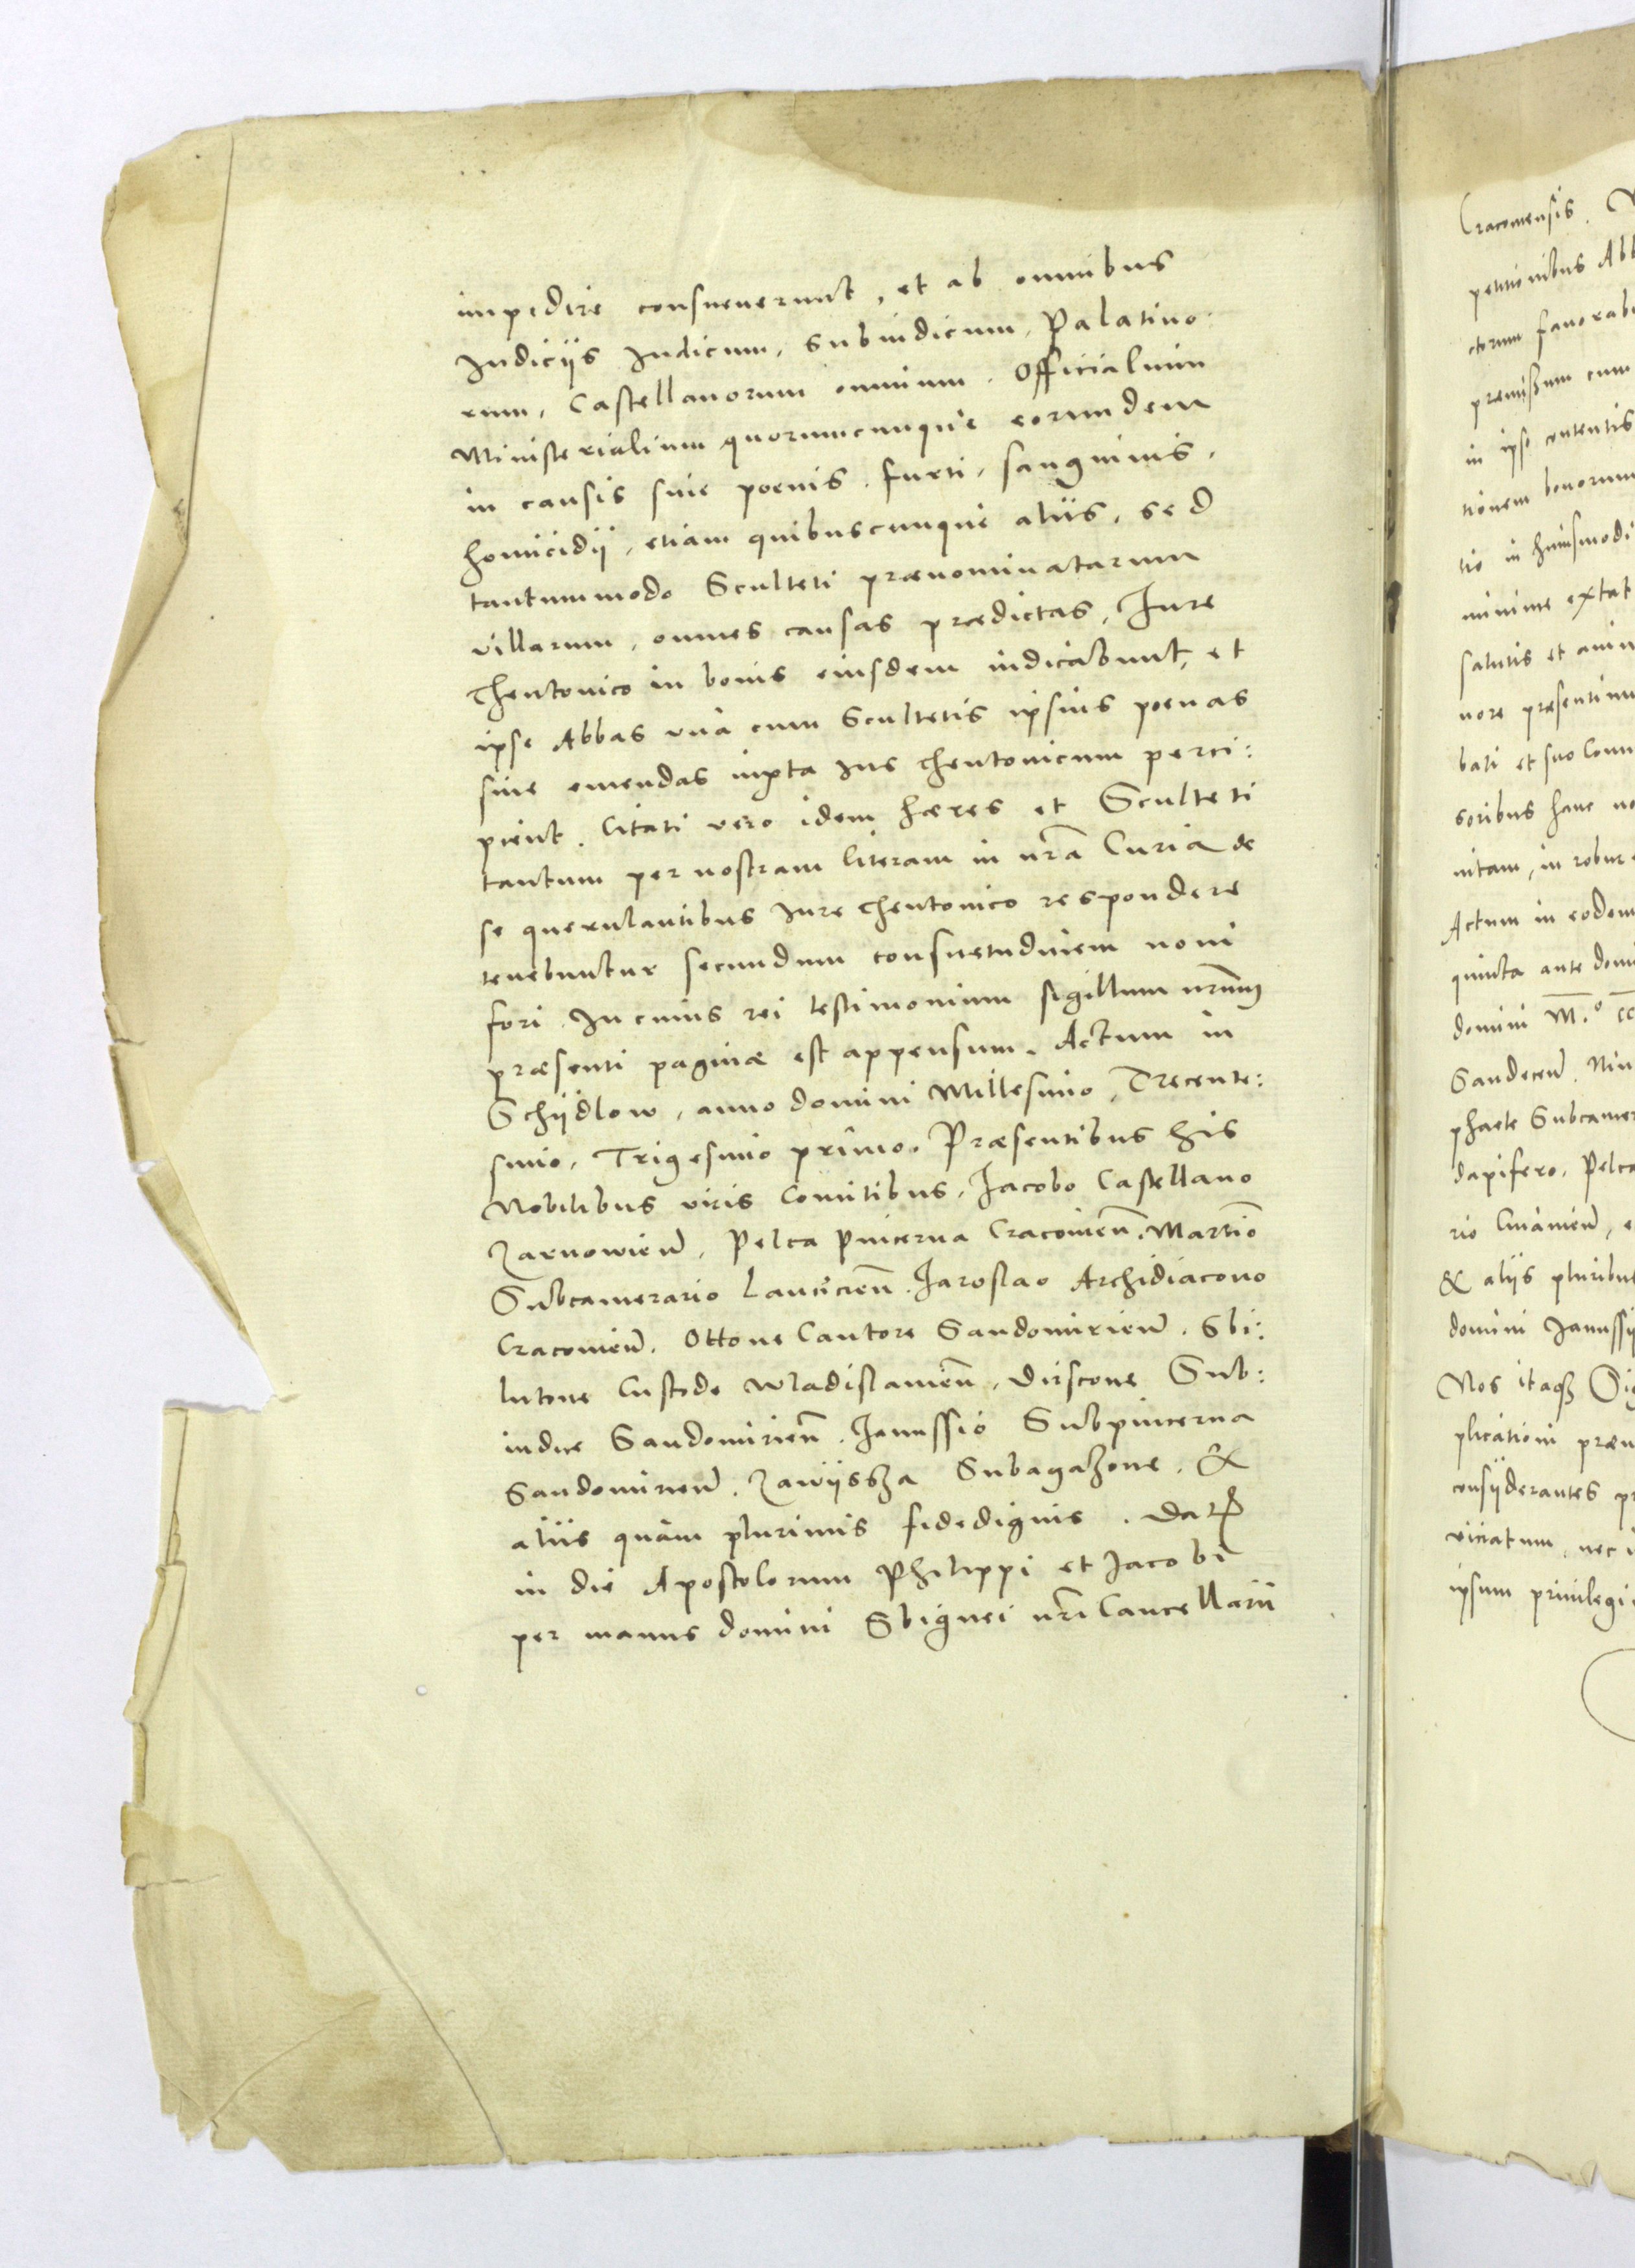 impedire consueuerunt, et ab omnibus
Iudicijs Iudicum, Subiudicum, Palatino:
rum, Castellanorum omnium, Officialium
Ministerialium quorumcunque eorumdem
in causis siue poenis, furti, sanguinis,
homicidij, etiam quibuscunque alijs, sed
tantummodo Sculteti praenominatarum
villarum, omnes causas praedictas, Iure
Theutonico in bonis eiusdem iudicabunt, et
ipse Abbas vnà cum Scultetis ipsius poenas
siue emendas iuxta Ius Theutonicum perci:
pient. Citati vero idem haeres et Sculteti
tantum per nostram literam in nrã Curia de
se querulantibus Iure Theutonico respondere
tenebuntur secundum consuetudinem noui
fori. In cuius rei testimonium sigillum nrũm
praesenti paginae est appensum. Actum in
Schijdlow, anno domini Millesimo, Trecente:
simo, Trigesimo primo. Praesentibus his
Nobilibus viris Comitibus, Iacobo Castellano
Zarnowień, Pelca Pincerna Cracouień. Martiño
Subcamerario Lancicień. Iaroslao Archidiacono
Cracouień. Ottone Cantore Sandomirień. Sbi:
lutone Custode Wladislauień, Dirscone Sub:
iudice Sandomirień. Ianussio Subpincerna
Sandomirień. Zawijssza Subagazone. &
alijs quàm plurimis fidedignis. Dat
in die Apostolorum Philippi et Iacobi
per manus domini Sbignei nrĩ Cancellarij
Cracouiensis.
petitionibus Abb
ctorum fauorab
praemissum cum
in ipso contentis
tionem bonorum
tio in huiusmodi
minime extat
salutis et anim
nore praesentium
bati et suo Conu
soribus hanc no
uitam, in robur
Actum in eodem
quinta ante dom
domini M.º cc
Sandeceń. Nin
phaete Subcamer
dapifero, Pelca
rio Cuiauień, e
& alijs pluribus
domini Ianussij
Nos itaqz Di
plicationi praen
consijderantes pr
viciatum, nec i
ipsum priuilegi